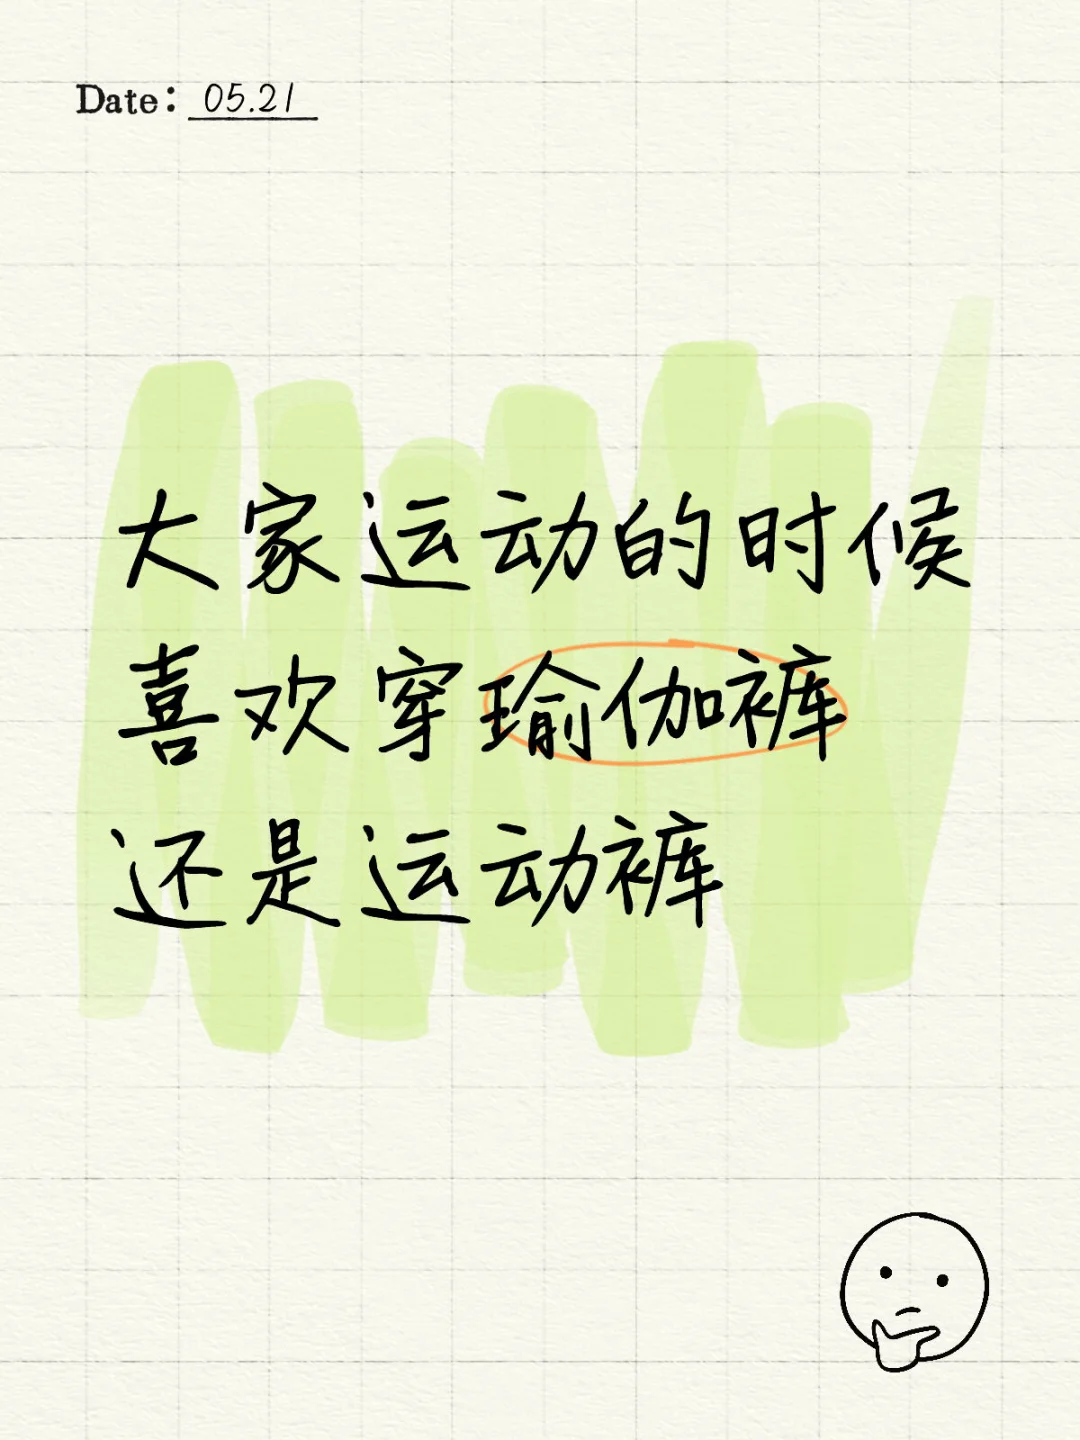 Date: 05.21
大家运动的时候
喜欢穿瑜伽裤
还是运动裤